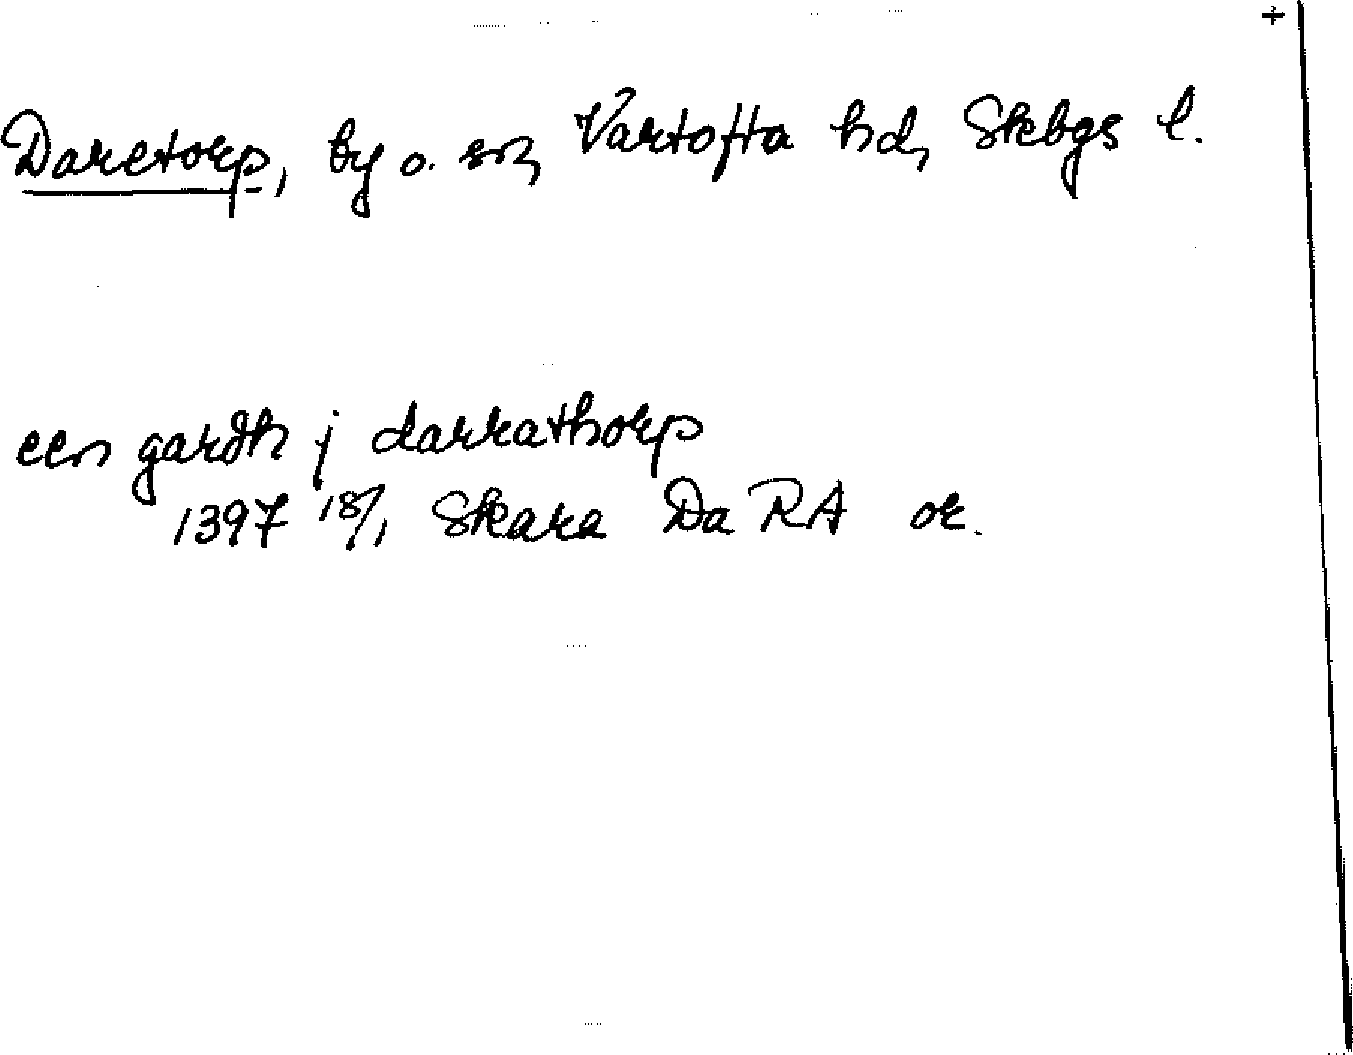 +
Daretorp, by o. sn, Vartofta hd, Skbgs l.
een gardh j darrathorp
1397 18/1 Skara Da RA or.